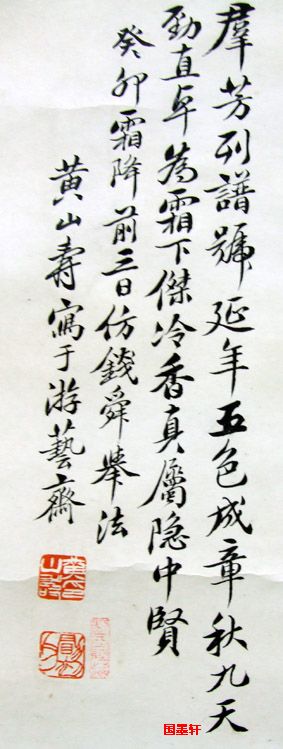 羣芳列譜號延年五色成章秋九天
勁直卓為霜下傑冷香真屬隐中賢
癸卯霜降前三日仿錢舜舉法
黃山壽寫于游藝齋
国墨轩